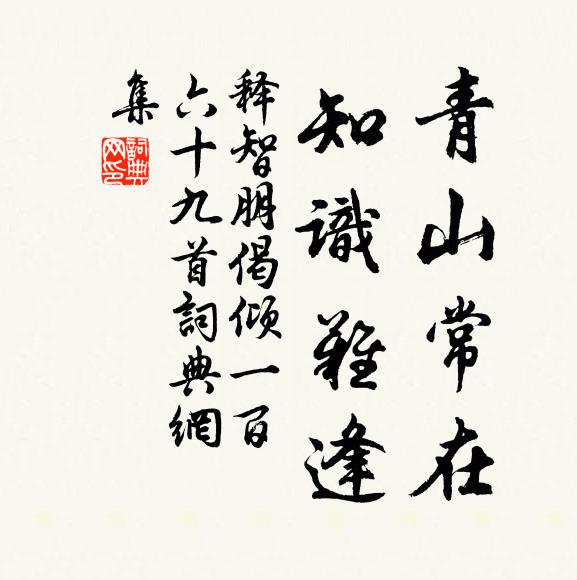 青山常在
知識難逢
释智朋偈倾一百
六十九首詞典網
集
詞典
网印